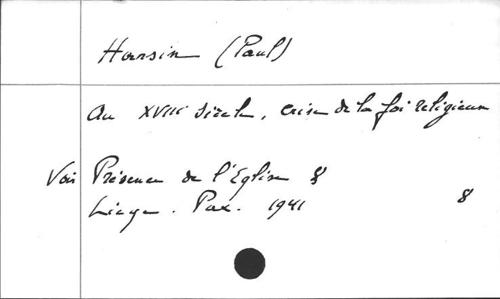 Harsin (Paul)
Au XVIIIe siècle, crise de la foi religieuse
Voir Présence de l'Eglise 8
Liège. Pax. 1941 8